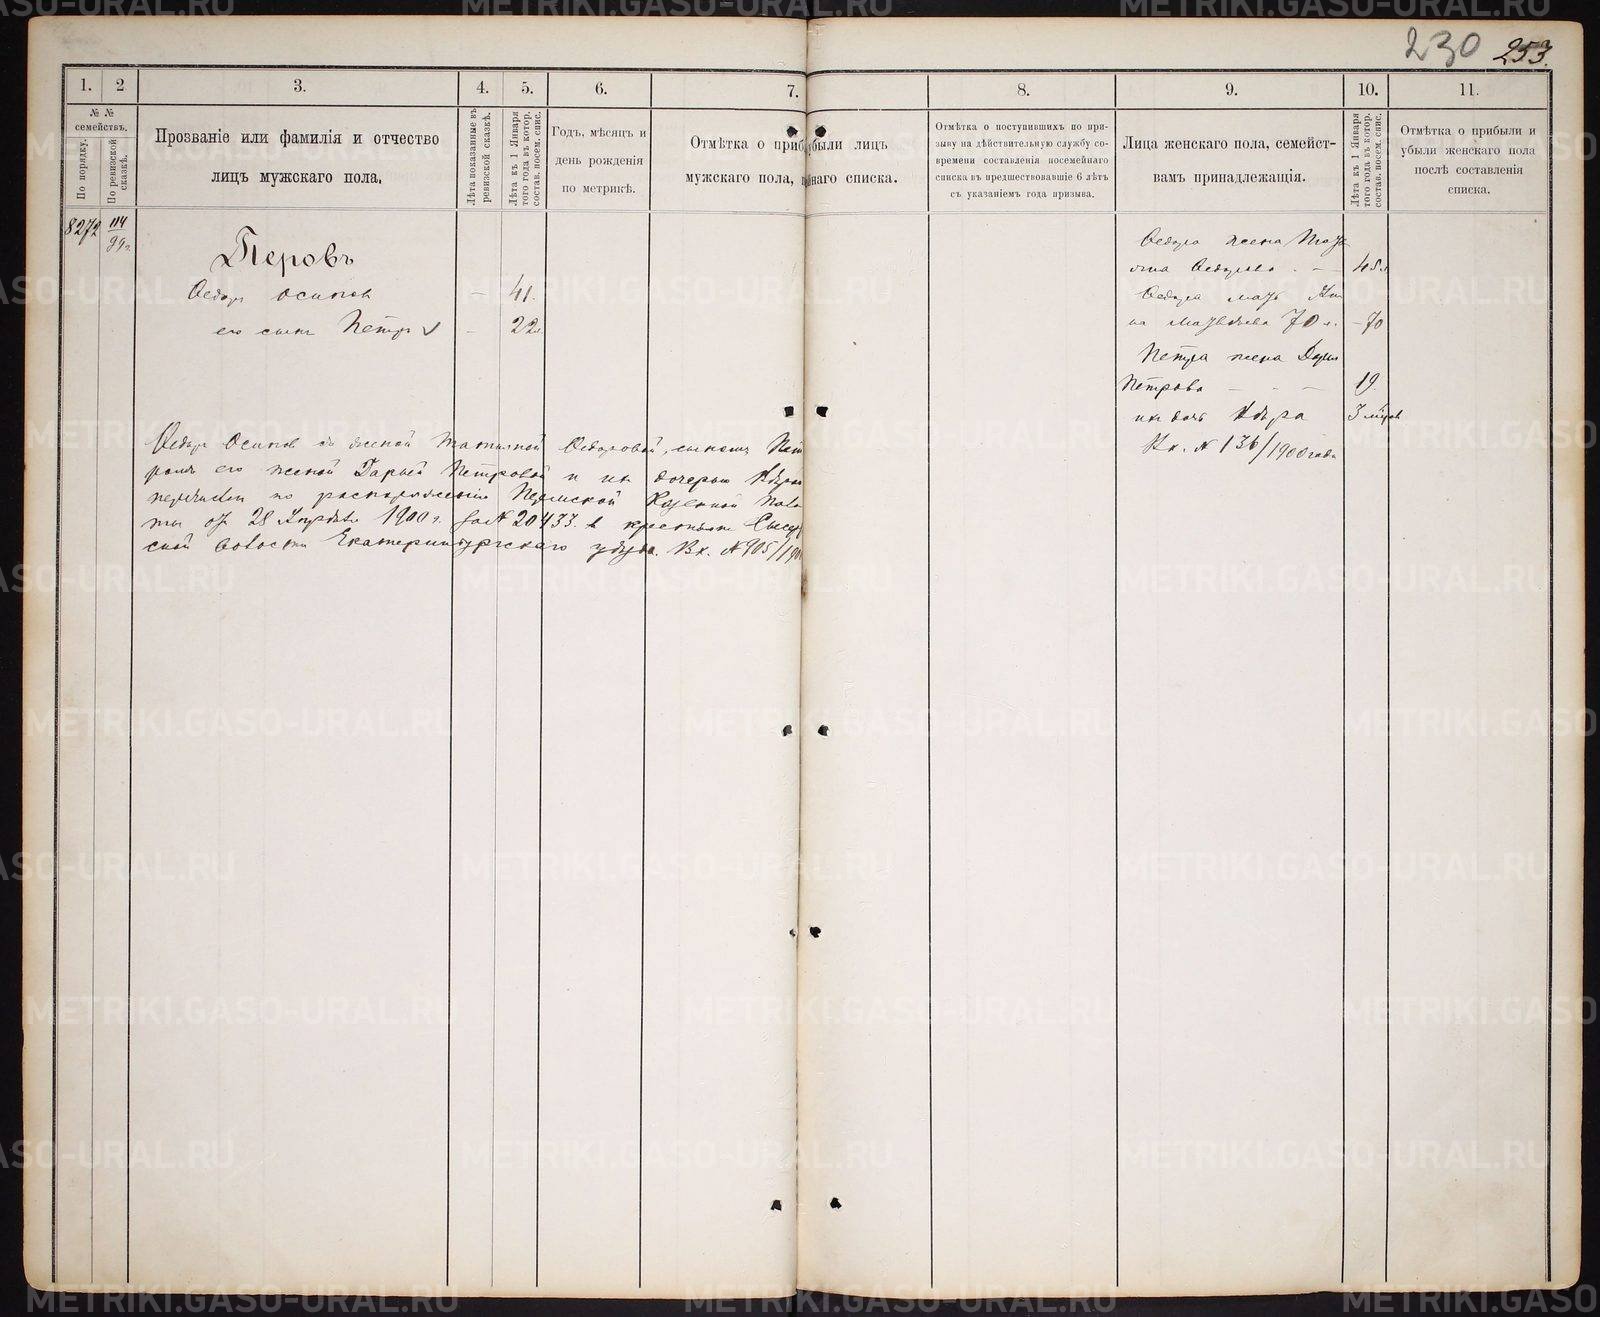 230 253.
1. 2 3. 4. 5. 6. 7. 8. 9. 10. 11.
№ № семействъ.
По порядку.
По ревизской сказкѣ.
Прозваніе или фамилія и отчество
лицъ мужскаго пола.
Лѣта показанные въ
ревизской сказкѣ.
Лѣта къ 1 Января
того года въ котор.
состав. посем. спис.
Годъ, мѣсяцъ и
день рожденія
по метрикѣ.
Отмѣтка о приб были лицъ
мужскаго пола, наго списка.
Отмѣтка о поступившихъ по при-
зыву на дѣйствительную службу со-
времени составленія посемейнаго
списка въ предшествовавшіе 6 лѣтъ
съ указаніемъ года призыва.
Лица женскаго пола, семейст-
вамъ принадлежащія.
Лѣта къ 1 Января
того года въ котор.
состав. посем. спис.
Отмѣтка о прибыли и
убыли женскаго пола
послѣ составленія
списка.
8272 114/99г.
Перовъ
Ѳедоръ Осиповъ – 41.
его сынъ Петръ – 22
Ѳедора жена Тать
яна Ѳедорова – 45
Ѳедора мать Ан
на Матвѣева 70 л. – 70
Петра жена Дарья
Петрова – – – 19.
ихъ дочь Вѣра 3 мѣсяц
Вх. № 136/1900 года
Ѳедоръ Осиповъ съ женой Татьяной Ѳедоровой, сыномъ Пет
ромъ его женой Дарьей Петровой и ихъ дочерью Вѣрой
перечислен по распоряженію Пермской Казенной Пала
ты отъ 28 Апрѣля 1900 г. за № 20433. въ крестьяне Сысерт
ской волости Екатеринбургскаго уѣзда. Вх. № 905/190